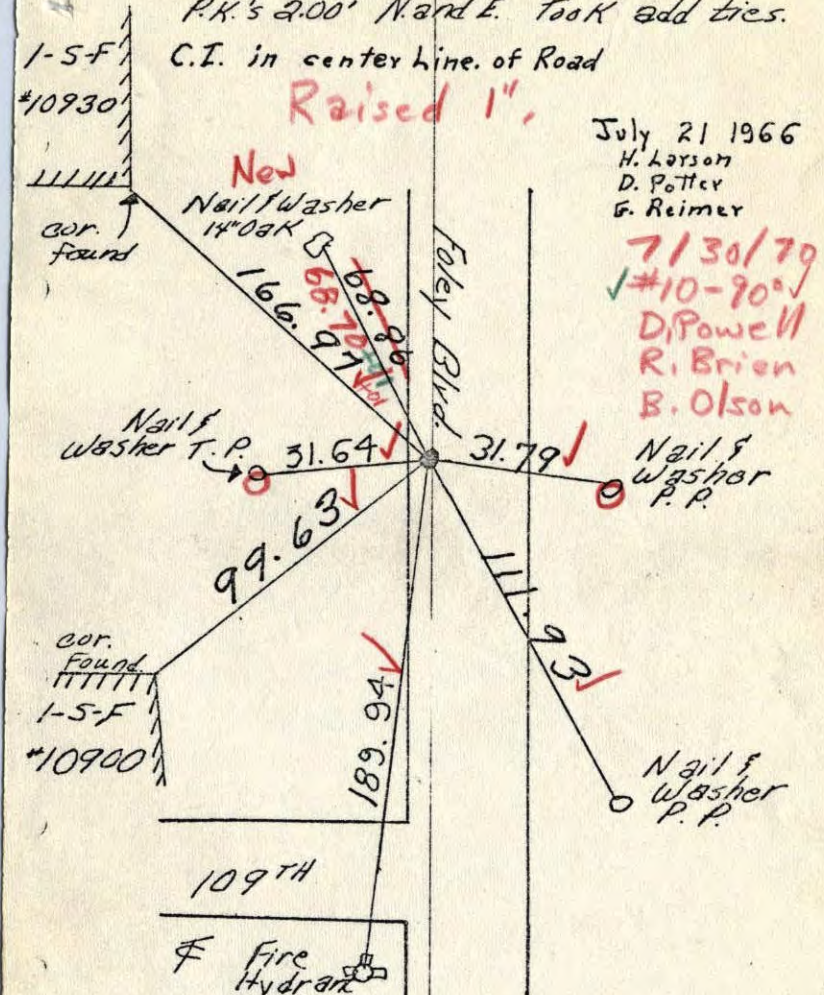 P.K.'s 2.00' N. and E. Took add ties.
1-S-F
#10930
C.I. in center Line. of Road
Raised 1".
July 21 1966
H. Larson
D. Potter
G. Reimer
7/30/70
#10-90°
D. Powell
R. Brien
B. Olson
New
Nail & Washer
14" Oak
cor.
found
166.97
68.70
68.86
Foley Blvd.
Nail &
Washer T.P.
31.64
31.79
Nail &
Washer
P.P.
99.63
111.93
cor.
Found
1-S-F
#10900
189.94
Nail &
Washer
P.P.
109TH
Fire
Hydrant